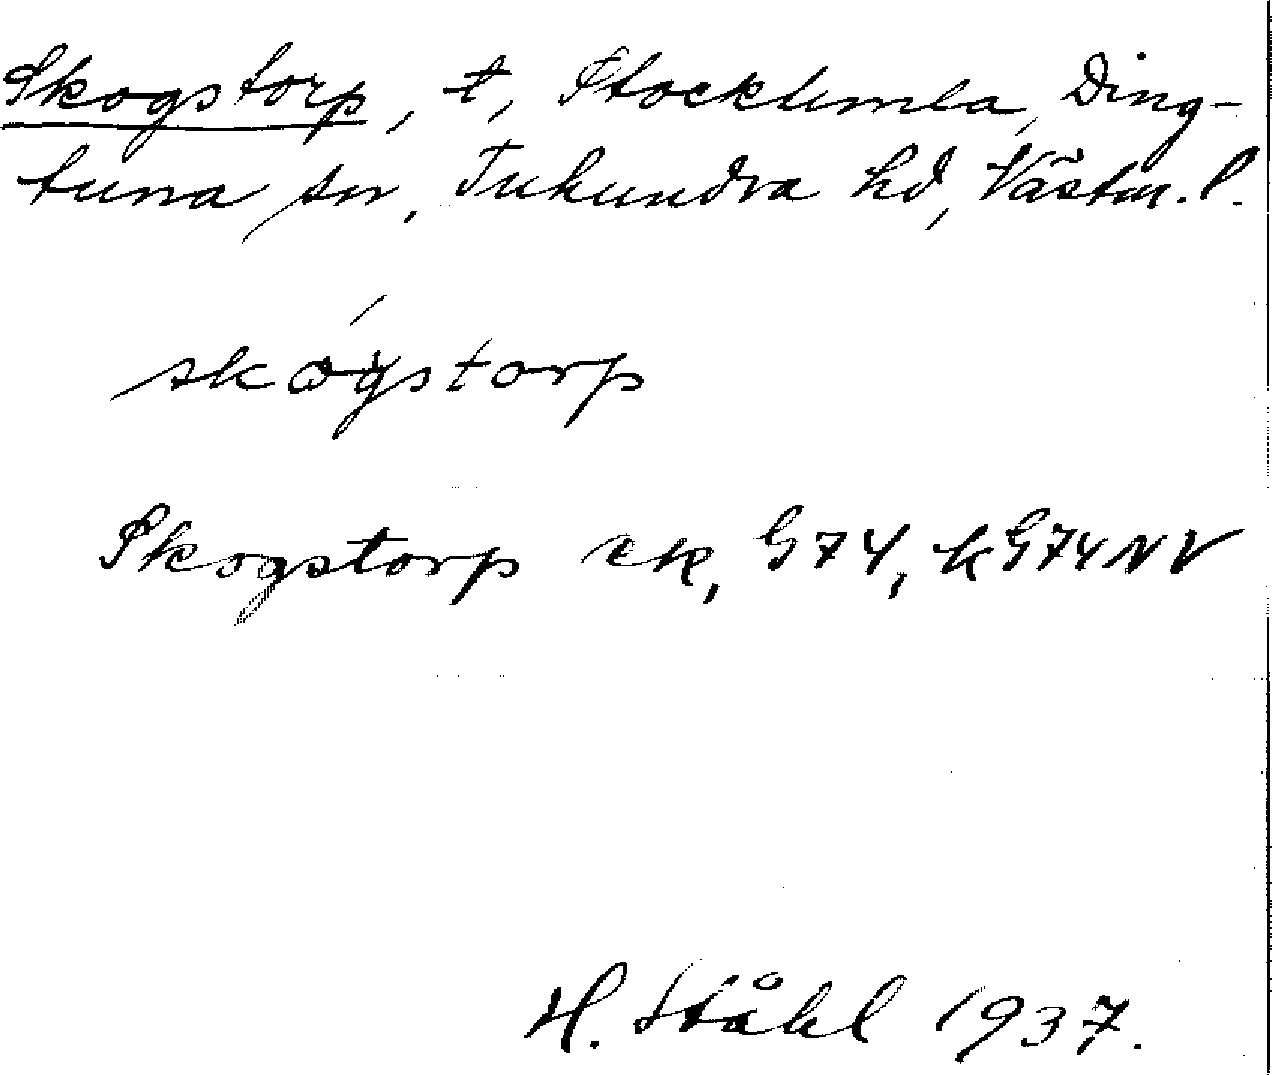 Skogstorp, t, Stockkumla, Ding-
tuna sn, Tuhundra hd, Västm. l.
skogstorp
Skogstorp ek, G74, kG74NV
H. Ståhl 1937.